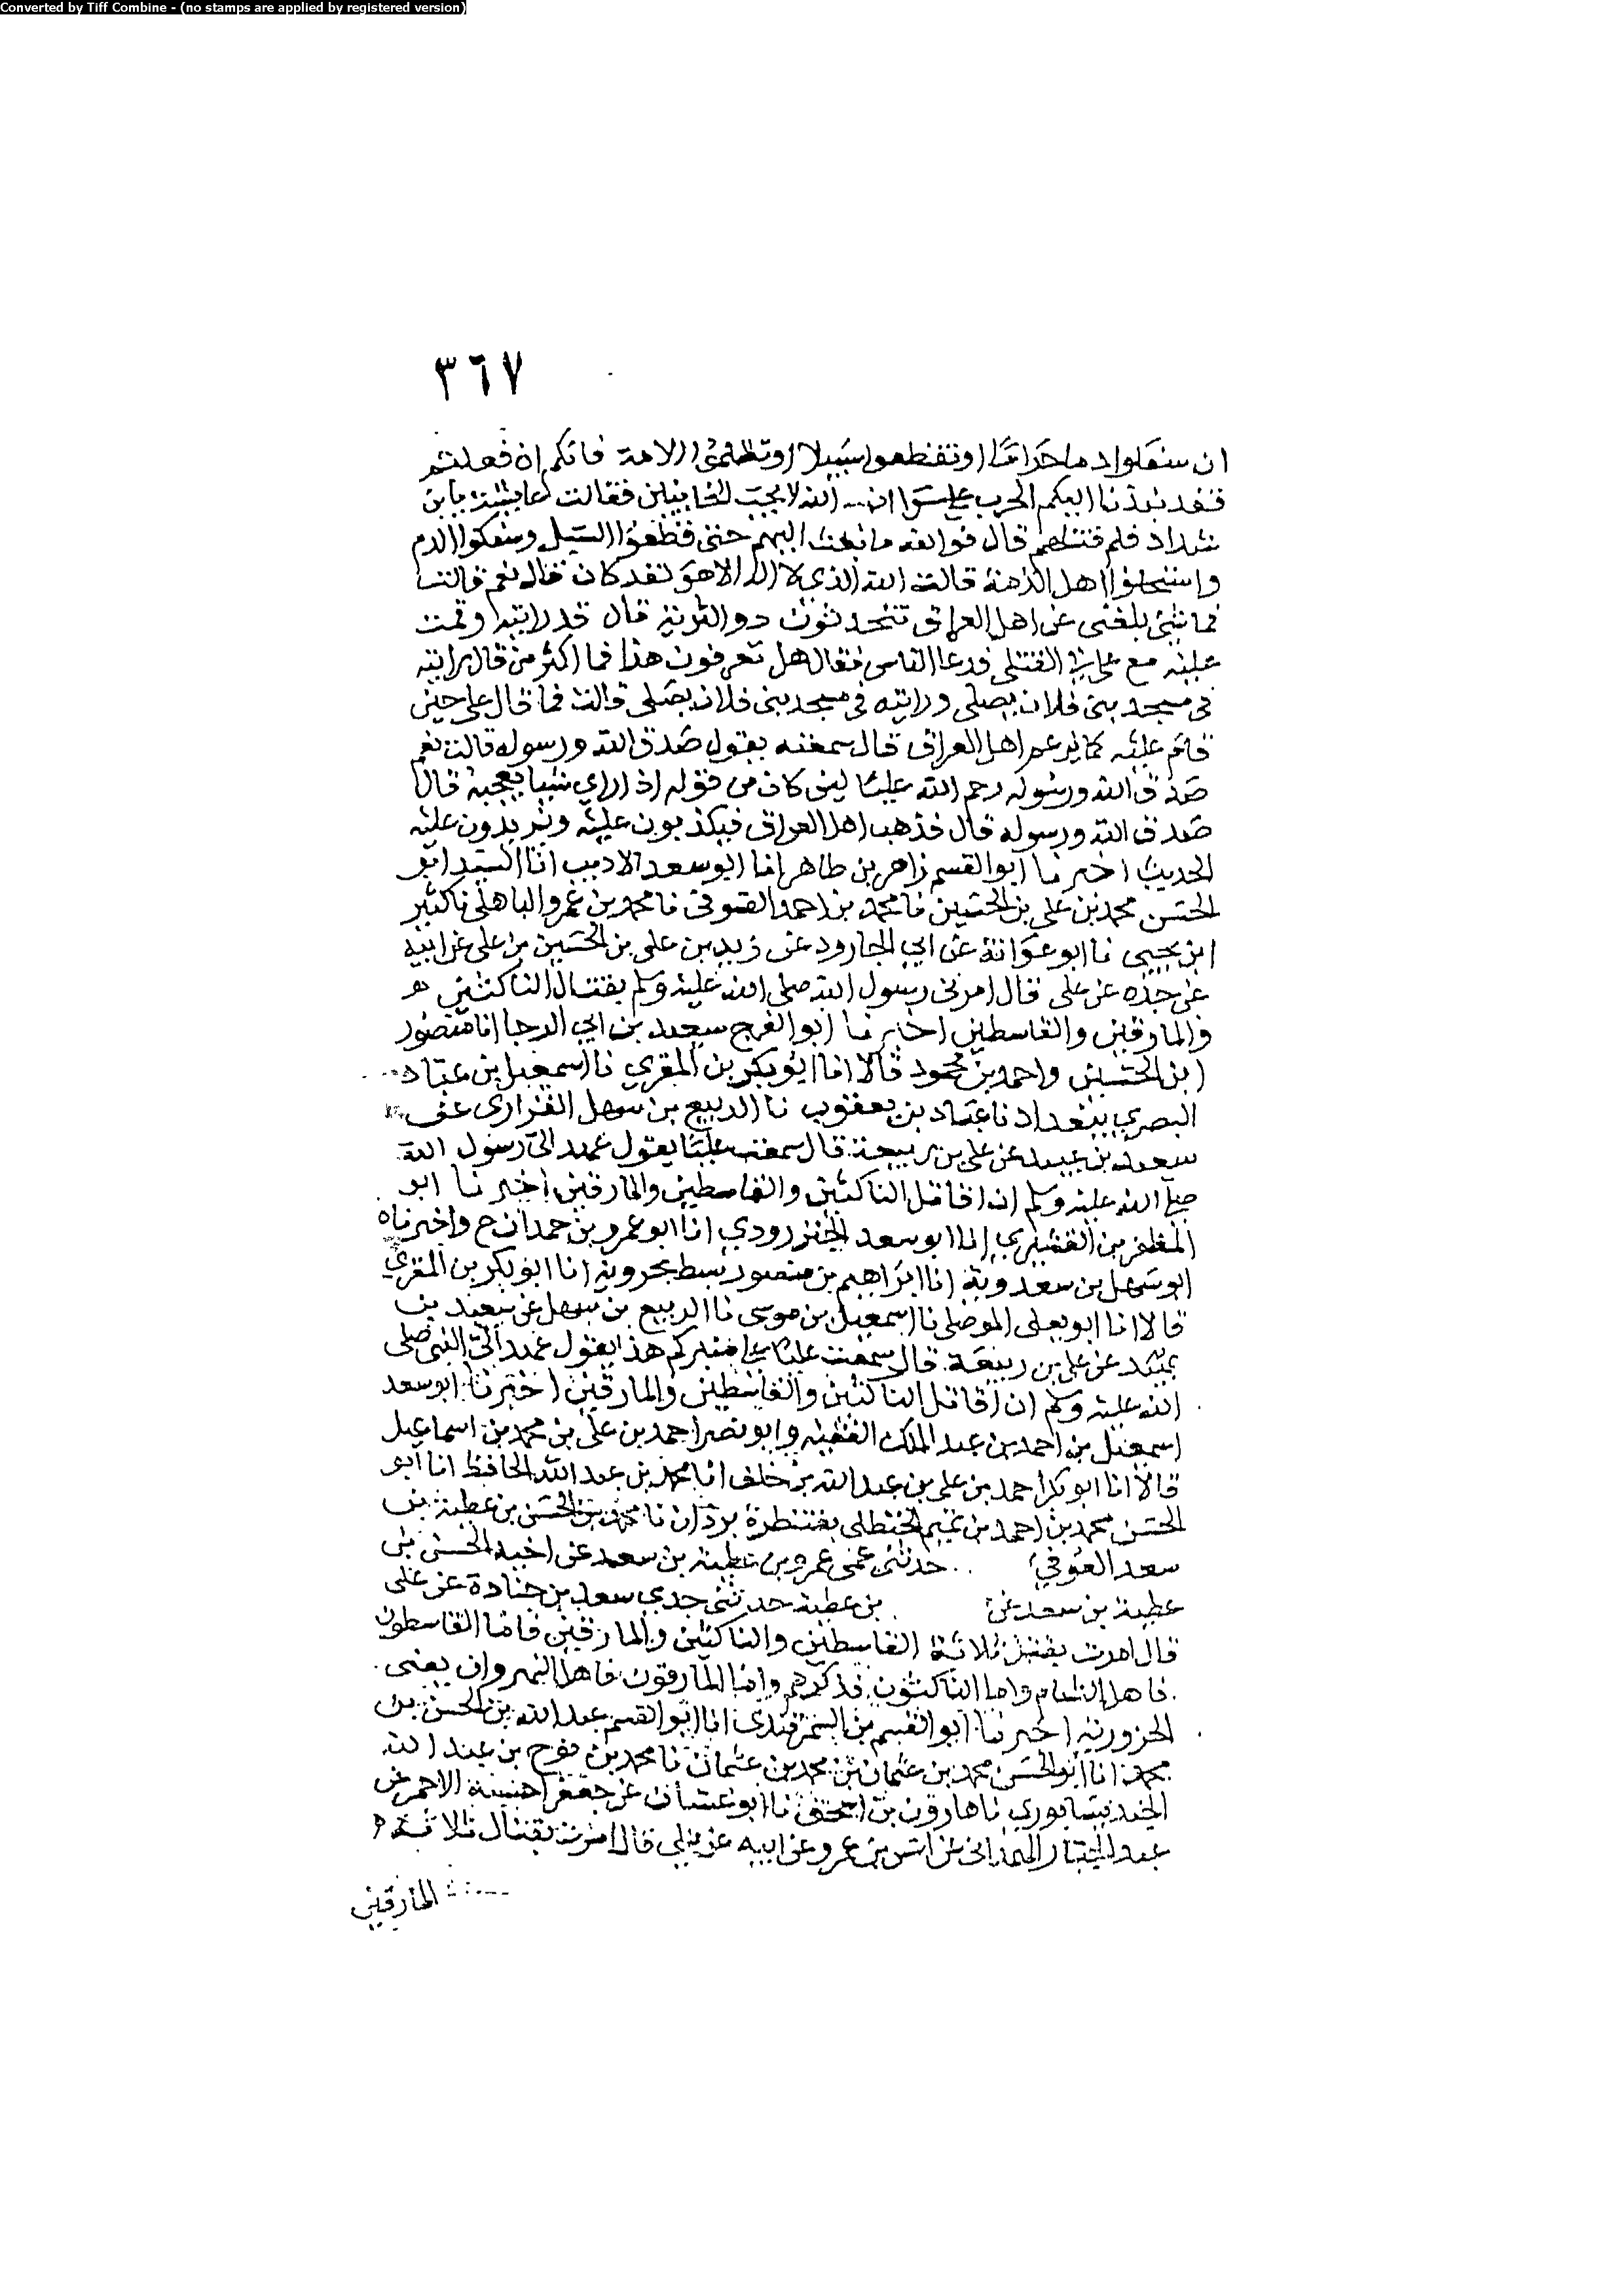 Converted by Tiff Combine - (no stamps are applied by registered version)
٣٦٧
ان سفكوا دما حراما او تقطعوا سبيلا او تظلموا الامة فانكم ان فعلتم
فقد نبذنا اليكم الحرب على سوا ان الله لا يحب الخاينين فقالت عايشة يا بن
شداد فلم قتلهم قال فوالله ما بعث اليهم حتى قطعوا السبيل وسفكوا الدم
واستحلوا اهل الذمة قالت الله الذي لا اله الا هو لقد كان قال نعم قالت
فما شي بلغني عن اهل العراق تتحدثون ذو الثدية قال قد رايته وقمت
عليه مع علي في القتلى فدعا الناس فقال هل تعرفون هذا فما اكثر من قال رايته
في مسجد بني فلان يصلي ورايته في مسجد بني فلان يصلي قالت فما قال علي حين
قام عليه كما يزعم اهل العراق قال سمعته يقول صدق الله ورسوله قالت نعم
صدق الله ورسوله رحم الله عليا ليس كان من قوله اذا راي شيا يعجبه قال
صدق الله ورسوله قال فذهب اهل العراق فيكذبون عليه ويزيدون عليه
الحديث اخبرنا ابو القسم زاهر بن طاهر انا ابو سعد الاديب انا السيد ابو
الحسن محمد بن علي بن الحسين نا محمد بن احمد الصوفي نا محمد بن عمرو الباهلي نا كثير
ابن يحيى نا ابو عوانة عن ابي الجارود عن زيد بن علي بن الحسين بن علي عن ابيه
عن جده عن علي قال امرني رسول الله صلى الله عليه وسلم بقتال الناكثين
والمارقين والقاسطين اخبرنا ابو الفرج سعيد بن ابي الرجا انا منصور
ابن الحسين واحمد بن محمود قالا انا ابو بكر بن المقري نا اسمعيل بن عباد
البصري ببغداد نا عباد بن يعقوب نا الربيع بن سهل الفزارى عن
سعيد بن عبيد عن علي بن ربيعة قال سمعت عليا يقول عهد الى رسول الله
صلى الله عليه وسلم ان اقاتل الناكثين والقاسطين والمارقين اخبرنا ابو
المظفر بن القشيري انا ابو سعد الجنزرودي انا ابو عمرو بن حمدان ح واخبرناه
ابو سهل بن سعدوية انا ابراهيم بن منصور سبط بحروية انا ابو بكر بن المقري
قالا انا ابو يعلى الموصلي نا اسمعيل بن موسى نا الربيع بن سهل عن سعيد بن
عبيد عن علي بن ربيعة قال سمعت عليا على منبركم هذا يقول عهد الي النبي صلى
الله عليه وسلم ان اقاتل الناكثين والقاسطين والمارقين اخبرنا ابو سعد
اسمعيل بن احمد بن عبد الملك الفقيه وابو نصر احمد بن علي بن محمد بن اسماعيل
قالا انا ابو بكر احمد بن علي بن عبد الله بن خلف انا محمد بن عبد الله الحافظ انا ابو
الحسن محمد بن احمد بن تميم الحنظلي بقنطرة بردان نا محمد بن الحسن بن عطية بن
سعد العوفي حدثني عمي عمرو بن عطية بن سعد عن اخيه الحسن بن
عطية بن سعد عن بن عطية حدثني جدي سعد بن جنادة عن علي
قال امرت بقتل ثلاثة القاسطين والناكثين والمارقين فاما القاسطون
فاهل الشام واما الناكثون فذكرهم واما المارقون فاهل النهروان يعني
الحرورية اخبرنا ابو القسم بن السمرقندي انا ابو القسم عبد الله بن الحسن بن
محمد انا ابو الحسن محمد بن عثمان بن محمد بن عثمان نا محمد بن نوح بن عبد الله
الجنديسابوري نا هارون بن اسحق نا ابو غسان عن جعفر الاحمر عن
عبد الجبار الهمداني عن انس بن عمرو عن ابيه عن علي قال امرت بقتال ثلاثة
المارقين